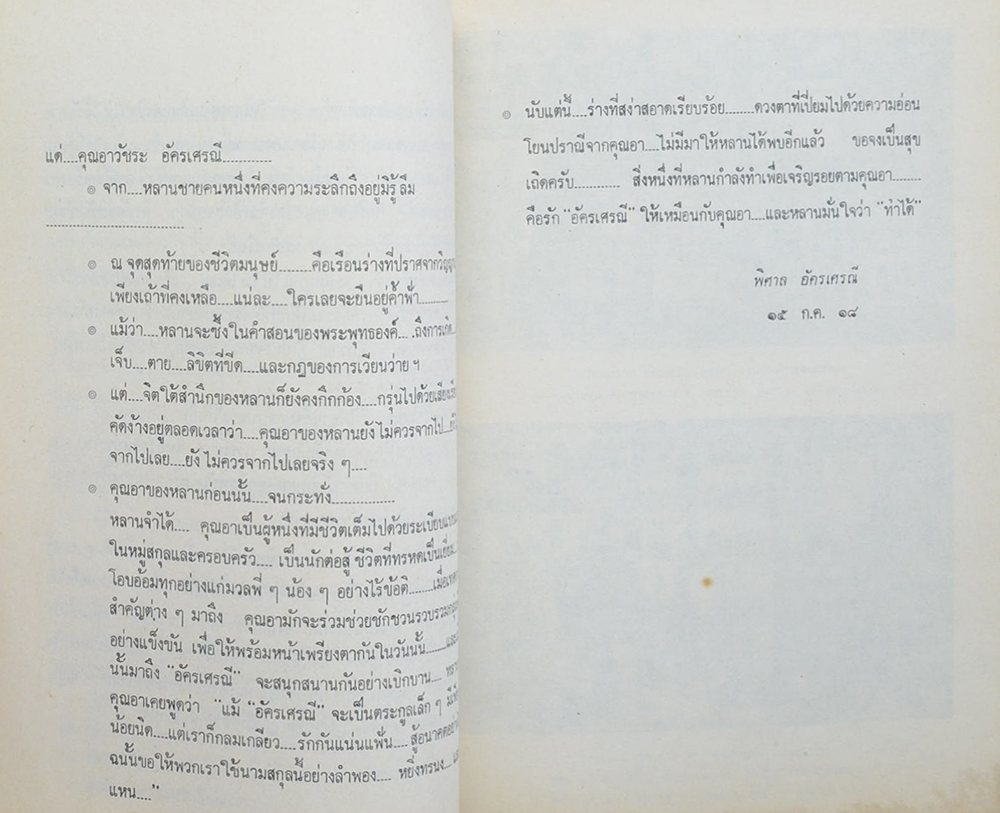 แด่....คุณอาวัชระ อัครเศรณี............
๏ จาก....หลานชายคนหนึ่งที่คงความระลึกถึงอยู่มิรู้ลืม
..................................
๏ ณ จุดสุดท้ายของชีวิตมนุษย์........คือเรือนร่างที่ปราศจากวิญญาณ
เพียงเถ้าที่คงเหลือ....แน่ละ....ใครเลยจะยืนอยู่ค้ำฟ้า..........
๏ แม้ว่า....หลานจะซึ้งในคำสอนของพระพุทธองค์....ถึงการเกิด
เจ็บ....ตาย....ลิขิตที่ขีด....และกฎของการเวียนว่าย ฯ
๏ แต่....จิตใต้สำนึกของหลานก็ยังคงกึกก้อง....กรุ่นไปด้วยเสียง
คัดง้างอยู่ตลอดเวลาว่า....คุณอาของหลานยังไม่ควรจากไป....
จากไปเลย....ยังไม่ควรจากไปเลยจริง ๆ....
๏ คุณอาของหลานก่อนนั้น....จนกระทั่ง................
หลานจำได้.... คุณอาเป็นผู้หนึ่งที่มีชีวิตเต็มไปด้วยระเบียบ
ในหมู่สกุลและครอบครัว.... เป็นนักต่อสู้ชีวิตที่ทรหดเป็นเยี่ยม
โอบอ้อมทุกอย่างแก่มวลพี่ ๆ น้อง ๆ อย่างไร้ข้อติ........เมื่อ
สำคัญต่าง ๆ มาถึง คุณอามักจะร่วมช่วยชักชวนรวบรวม
อย่างแข็งขัน เพื่อให้พร้อมหน้าเพรียงตากันในวันนั้น........
นั้นมาถึง "อัครเศรณี" จะสนุกสนานกันอย่างเบิกบาน....
คุณอาเคยพูดว่า "แม้ "อัครเศรณี" จะเป็นตระกูลเล็ก ๆ
น้อยนิด....แต่เราก็กลมเกลียว....รักกันแน่นแฟ้น....
ฉนั้นขอให้พวกเราใช้นามสกุลนี้อย่างลำพอง.... หยิ่งทรนง....
แหน...."
๏ นับแต่นี้....ร่างที่สง่าสอาดเรียบร้อย........ดวงตาที่เปี่ยมไปด้วยความอ่อน
โยนปราณีจากคุณอา....ไม่มีมาให้หลานได้พบอีกแล้ว ขอจงเป็นสุข
เถิดครับ............ สิ่งหนึ่งที่หลานกำลังทำเพื่อเจริญรอยตามคุณอา........
คือรัก "อัครเศรณี" ให้เหมือนกับคุณอา....และหลานมั่นใจว่า "ทำได้"
พิศาล อัครเศรณี
๑๕ ก.ค. ๑๘